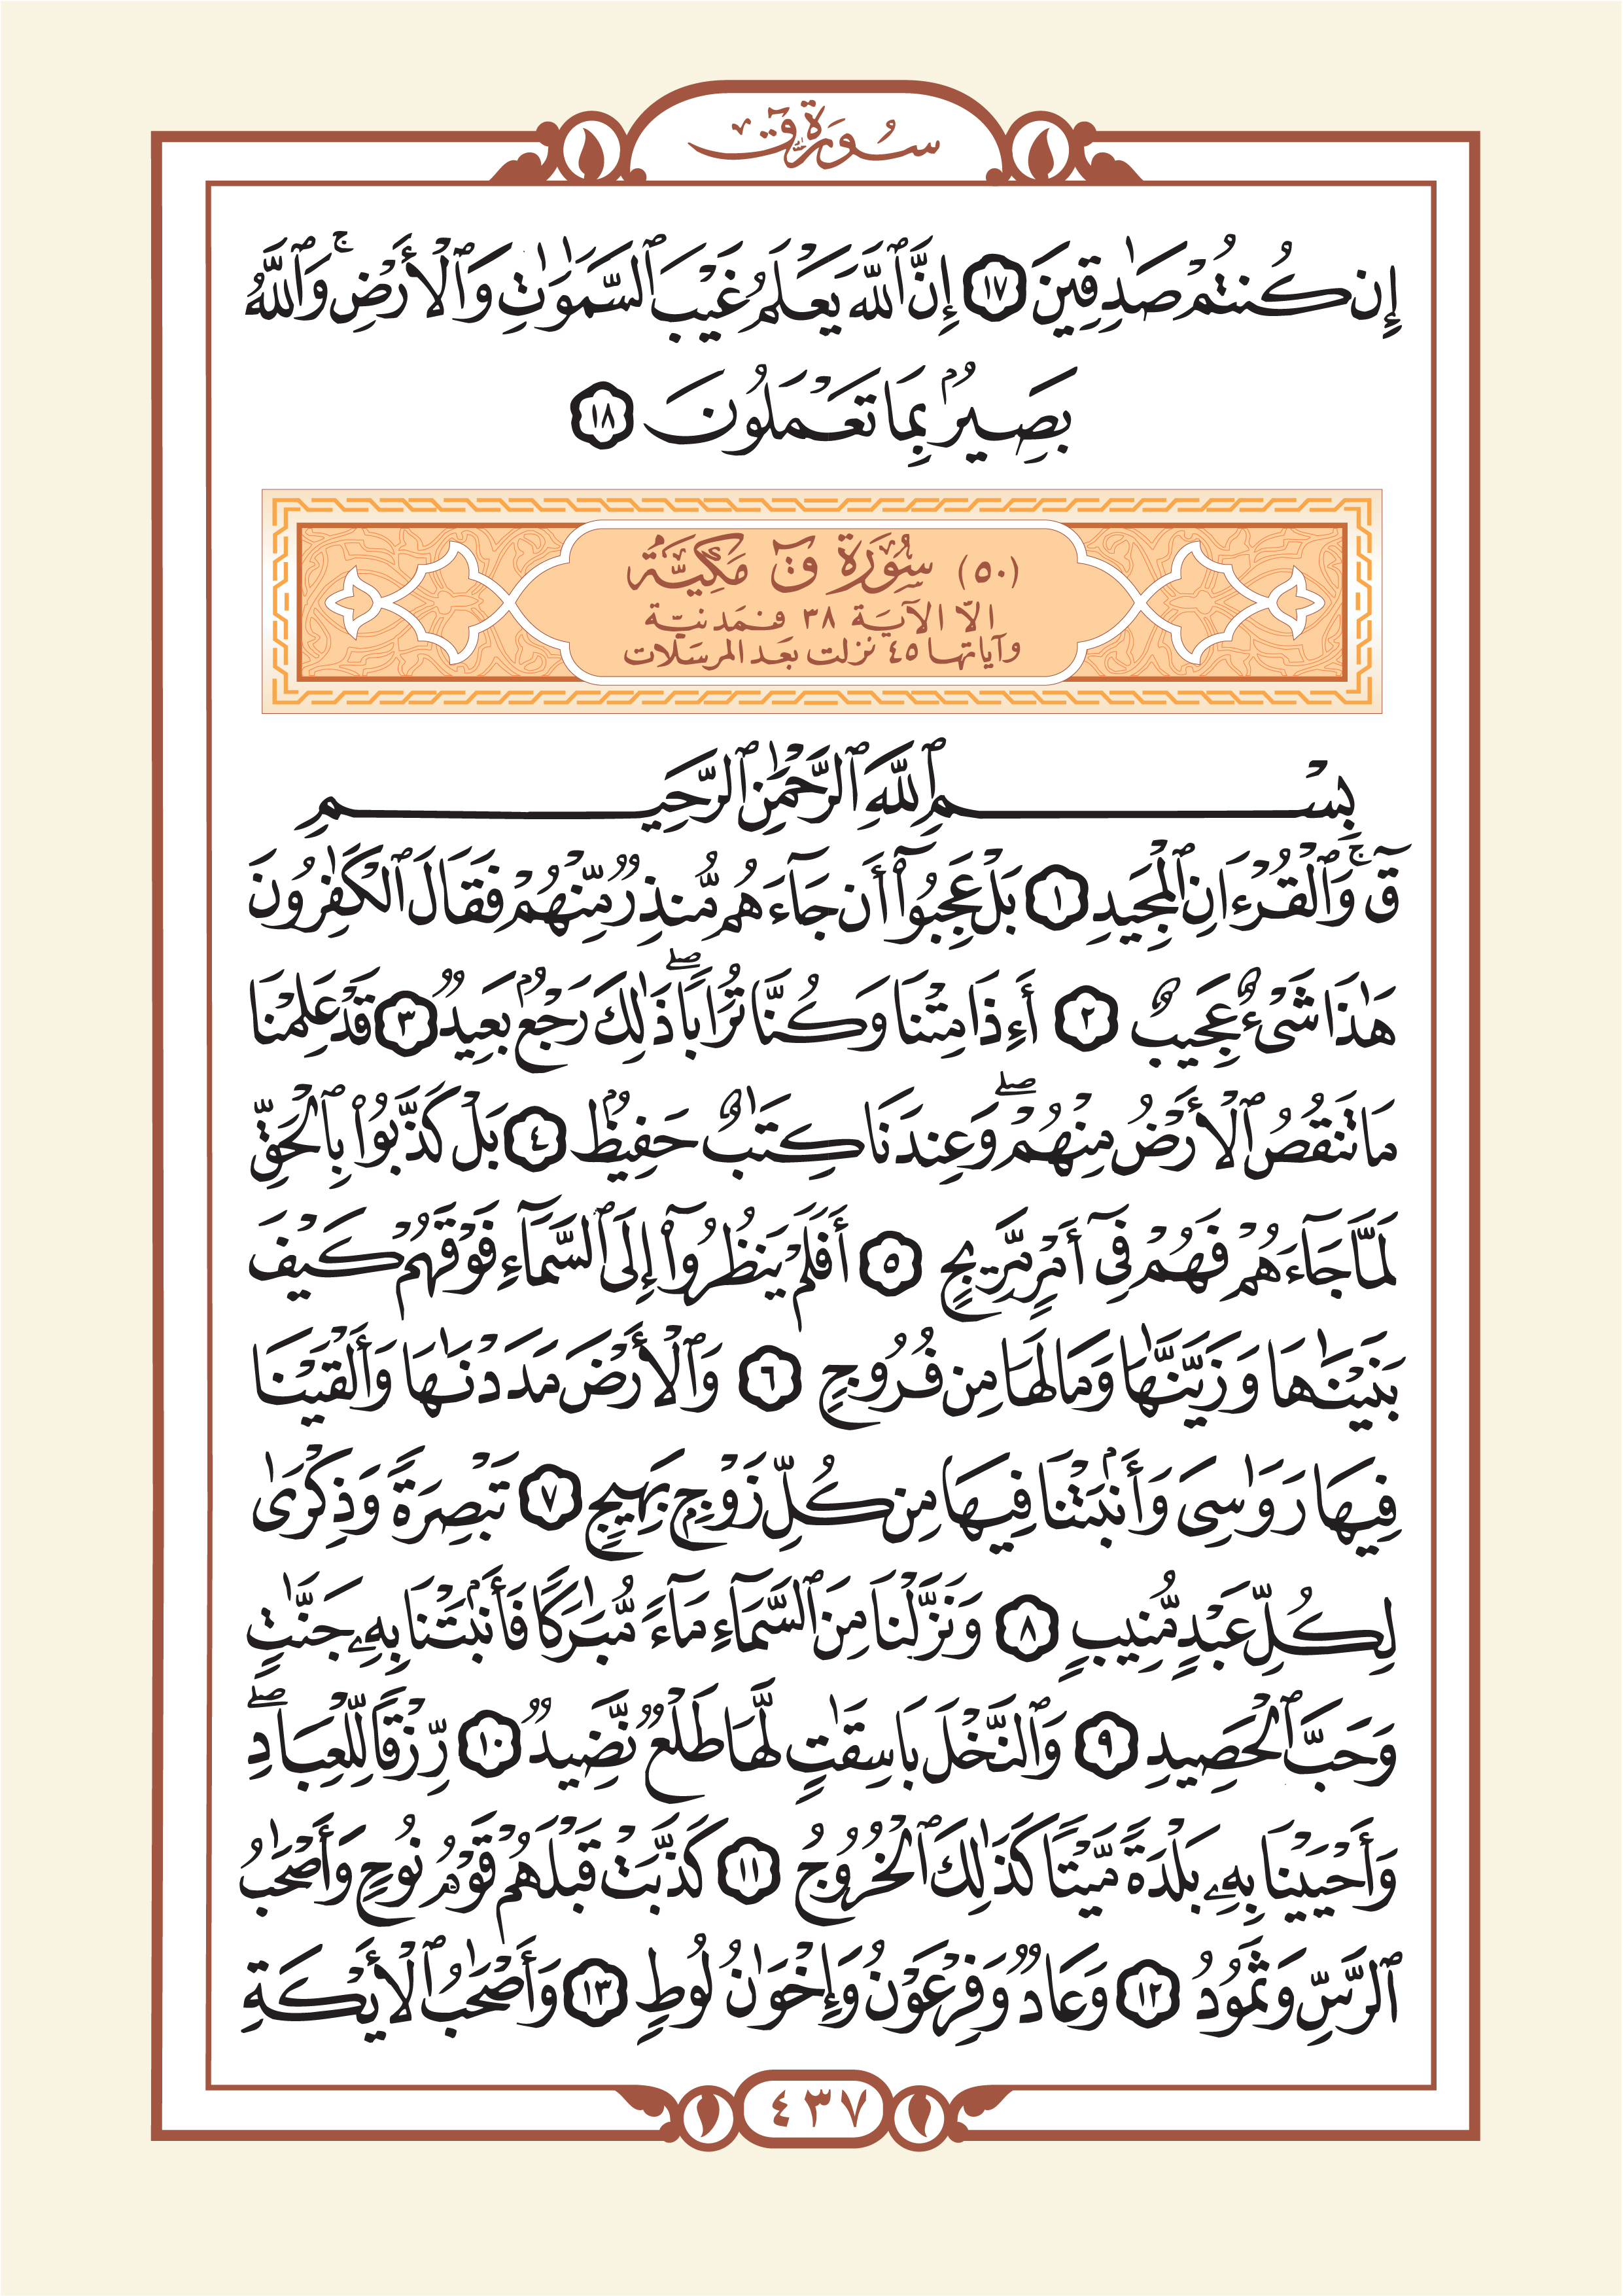 سورة ق
إِن كُنتُمْ صَٰدِقِينَ ١٧ إِنَّ ٱللَّهَ يَعْلَمُ غَيْبَ ٱلسَّمَٰوَٰتِ وَٱلْأَرْضِ ۚ وَٱللَّهُ
بَصِيرٌۢ بِمَا تَعْمَلُونَ ١٨
(٥٠) سُورَة قٓ مَكِيَّة
الّا الآيَة ٣٨ فمَدنيّة
وآياتها ٤٥ نزلت بعَد المرسَلات
بِسْمِ ٱللَّهِ ٱلرَّحْمَٰنِ ٱلرَّحِيمِ
قٓ ۚ وَٱلْقُرْءَانِ ٱلْمَجِيدِ ١ بَلْ عَجِبُوٓا۟ أَن جَآءَهُم مُّنذِرٌ مِّنْهُمْ فَقَالَ ٱلْكَٰفِرُونَ
هَٰذَا شَىْءٌ عَجِيبٌ ٢ أَءِذَا مِتْنَا وَكُنَّا تُرَابًا ۖ ذَٰلِكَ رَجْعٌۢ بَعِيدٌ ٣ قَدْ عَلِمْنَا
مَا تَنقُصُ ٱلْأَرْضُ مِنْهُمْ ۖ وَعِندَنَا كِتَٰبٌ حَفِيظٌۢ ٤ بَلْ كَذَّبُوا۟ بِٱلْحَقِّ
لَمَّا جَآءَهُمْ فَهُمْ فِىٓ أَمْرٍ مَّرِيجٍ ٥ أَفَلَمْ يَنظُرُوٓا۟ إِلَى ٱلسَّمَآءِ فَوْقَهُمْ كَيْفَ
بَنَيْنَٰهَا وَزَيَّنَّٰهَا وَمَا لَهَا مِن فُرُوجٍ ٦ وَٱلْأَرْضَ مَدَدْنَٰهَا وَأَلْقَيْنَا
فِيهَا رَوَٰسِىَ وَأَنۢبَتْنَا فِيهَا مِن كُلِّ زَوْجٍۭ بَهِيجٍ ٧ تَبْصِرَةً وَذِكْرَىٰ
لِكُلِّ عَبْدٍ مُّنِيبٍ ٨ وَنَزَّلْنَا مِنَ ٱلسَّمَآءِ مَآءً مُّبَٰرَكًا فَأَنۢبَتْنَا بِهِۦ جَنَّٰتٍ
وَحَبَّ ٱلْحَصِيدِ ٩ وَٱلنَّخْلَ بَاسِقَٰتٍ لَّهَا طَلْعٌ نَّضِيدٌ ١٠ رِّزْقًا لِّلْعِبَادِ ۖ
وَأَحْيَيْنَا بِهِۦ بَلْدَةً مَّيْتًا كَذَٰلِكَ ٱلْخُرُوجُ ١١ كَذَّبَتْ قَبْلَهُمْ قَوْمُ نُوحٍ وَأَصْحَٰبُ
ٱلرَّسِّ وَثَمُودُ ١٢ وَعَادٌ وَفِرْعَوْنُ وَإِخْوَٰنُ لُوطٍ ١٣ وَأَصْحَٰبُ ٱلْأَيْكَةِ
٤٣٧